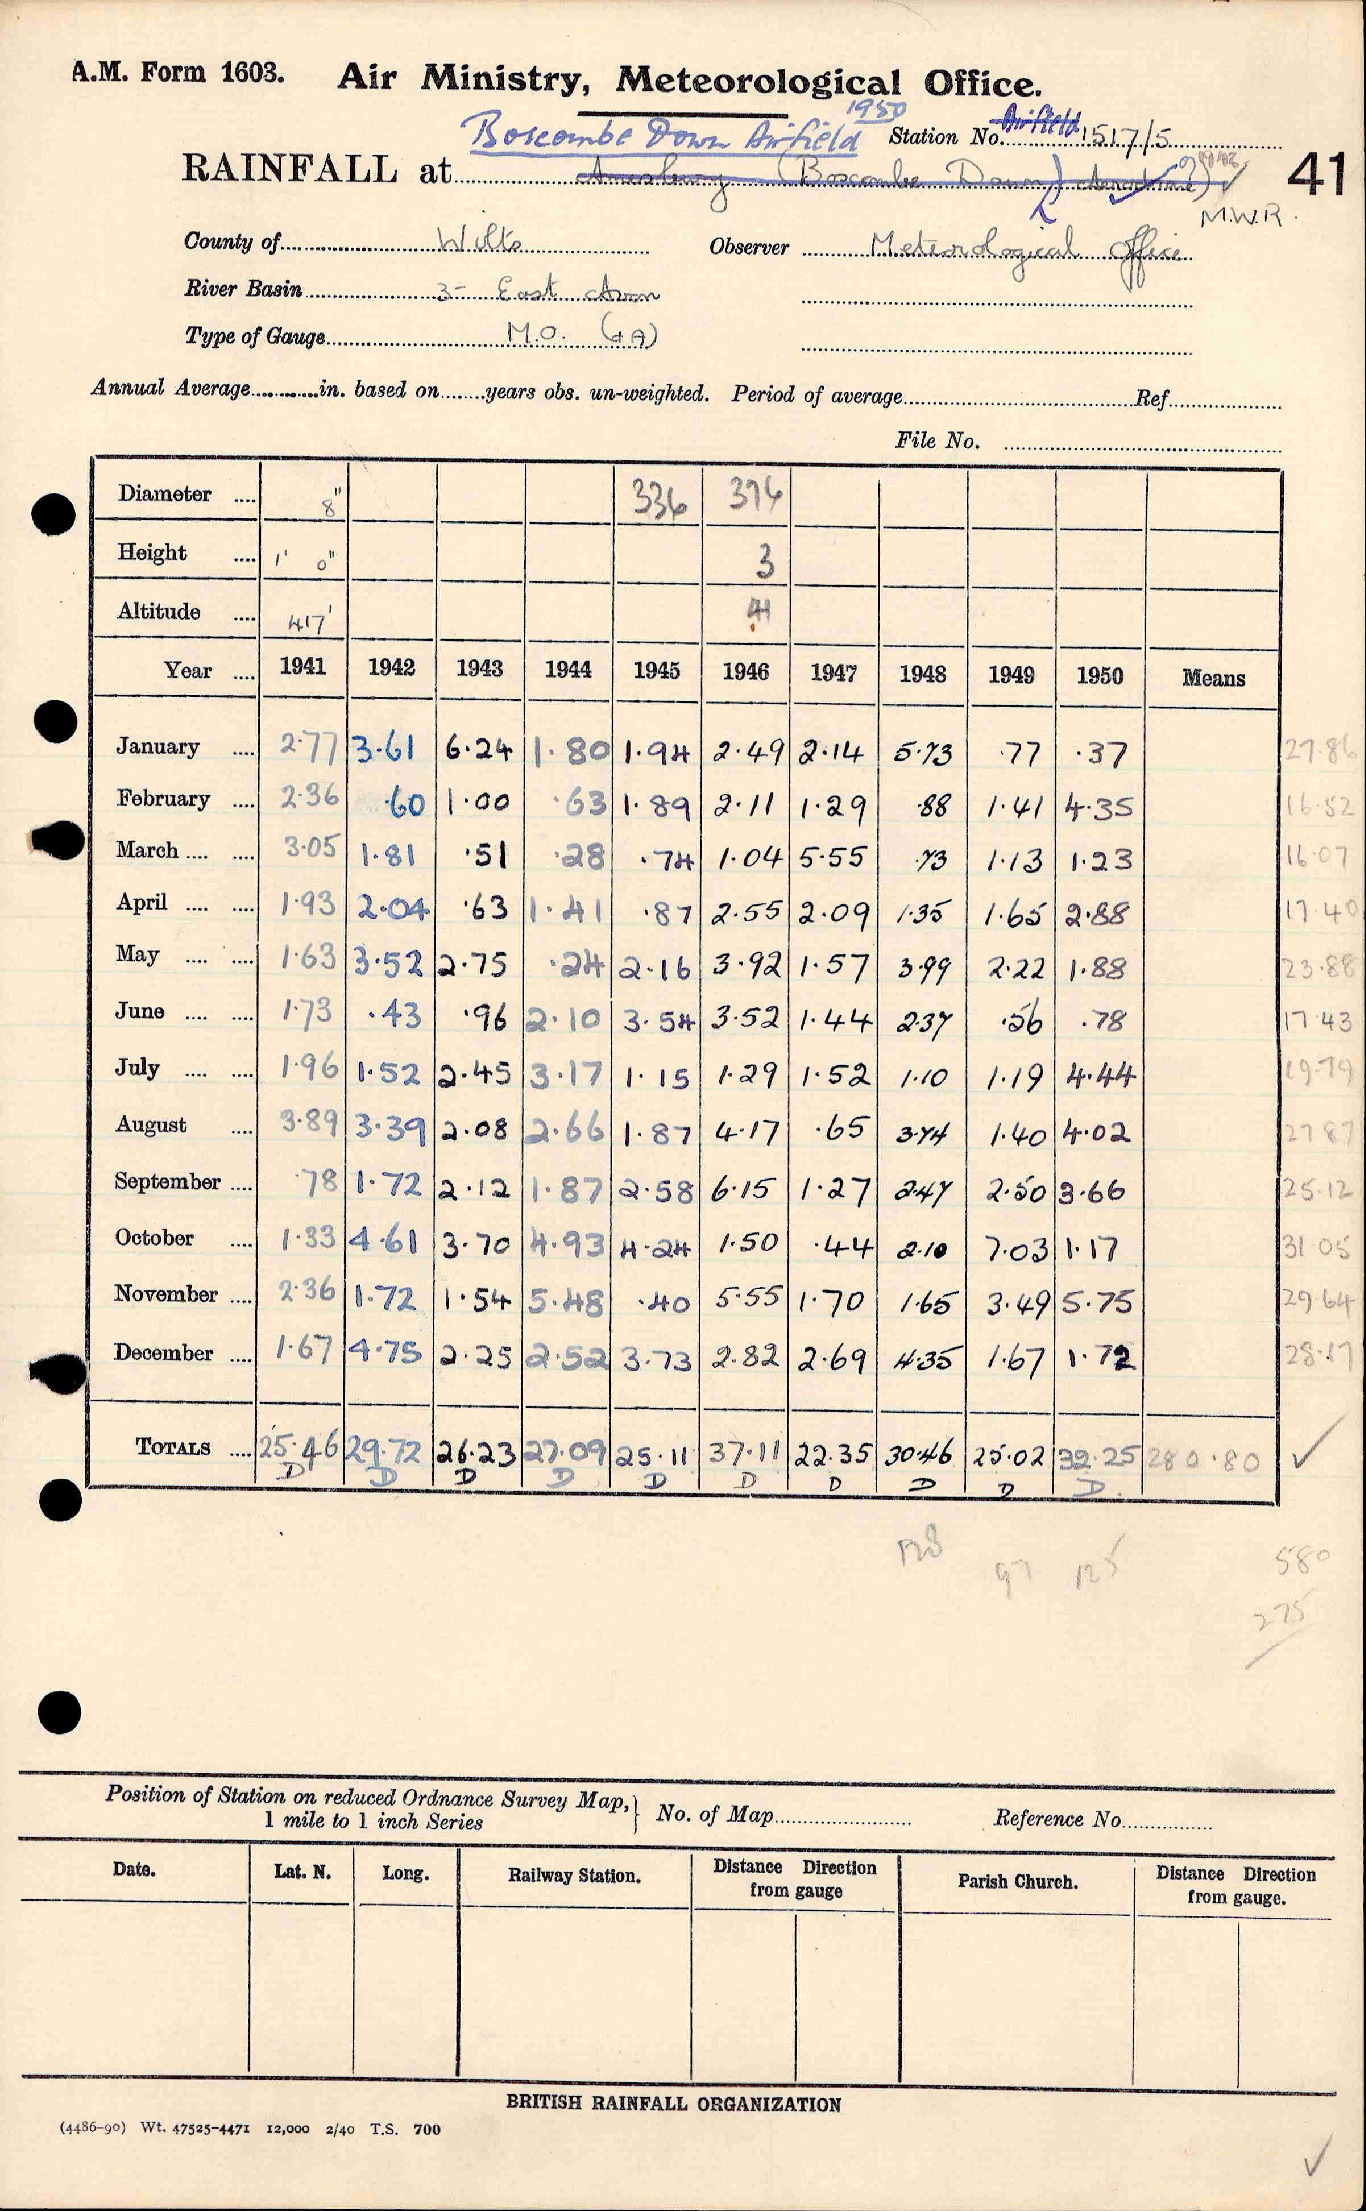 A.M. Form 1603. Air Ministry, Meteorological Office.
1950
Boscombe Down Airfield Station No. Airfield 1517/5
RAINFALL at Amesbury (Boscombe Down) 41
M.W.R.
County of Wilts Observer Meteorological Office
River Basin 3- East Avon
Type of Gauge M.O. (+A)
Annual Average in. based on years obs. un-weighted. Period of average Ref
File No.
Diameter 8" 336 376
Height 1' 0" 3
Altitude 417' 41
Year 1941 1942 1943 1944 1945 1946 1947 1948 1949 1950 Means
January 2.77 3.61 6.24 1.80 1.94 2.49 2.14 5.73 .77 .37 27.86
February 2.36 .60 1.00 .63 1.89 2.11 1.29 .88 1.41 4.35 16.52
March 3.05 1.81 .51 .28 .74 1.04 5.55 .73 1.13 1.23 16.07
April 1.93 2.04 .63 1.41 .87 2.55 2.09 1.35 1.65 2.88 17.40
May 1.63 3.52 2.75 .24 2.16 3.92 1.57 3.99 2.22 1.88 23.88
June 1.73 .43 .96 2.10 3.54 3.52 1.44 2.37 .56 .78 17.43
July 1.96 1.52 2.45 3.17 1.15 1.29 1.52 1.10 1.19 4.44 19.79
August 3.89 3.39 2.08 2.66 1.87 4.17 .65 3.74 1.40 4.02 27.87
September .78 1.72 2.12 1.87 2.58 6.15 1.27 2.47 2.50 3.66 25.12
October 1.33 4.61 3.70 4.93 4.24 1.50 .44 2.10 7.03 1.17 31.05
November 2.36 1.72 1.54 5.48 .40 5.55 1.70 1.65 3.49 5.75 29.64
December 1.67 4.75 2.25 2.52 3.73 2.82 2.69 4.35 1.67 1.72 28.17
TOTALS 25.46 29.72 26.23 27.09 25.11 37.11 22.35 30.46 25.02 32.25 280.80
D D D D D D D D D D.
128 97 125 580
275
Position of Station on reduced Ordnance Survey Map, No. of Map Reference No.
1 mile to 1 inch Series
Date. Lat. N. Long. Railway Station. Distance Direction Parish Church. Distance Direction
from gauge from gauge.
BRITISH RAINFALL ORGANIZATION
(4486-90) Wt. 47525-4471 12,000 2/40 T.S. 700